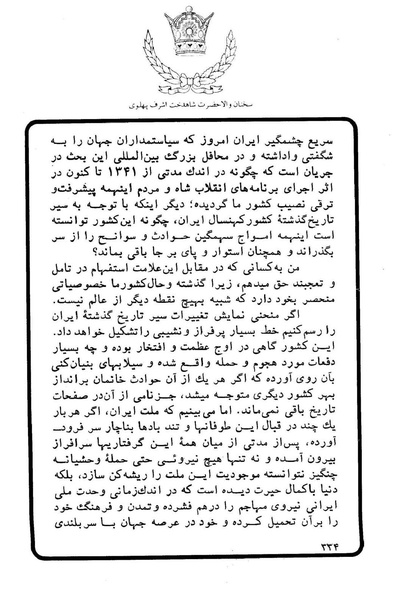 سخنان والاحضرت شاهدخت اشرف پهلوی
سریع چشمگیر ایران امروز که سیاستمداران جهان را به
شگفتی واداشته و در محافل بزرگ بین‌المللی این بحث در
جریان است که چگونه در اندک مدتی از ۱۳۴۱ تا کنون در
اثر اجرای برنامه‌های انقلاب شاه و مردم اینهمه پیشرفت و
ترقی نصیب کشور ما گردیده؛ دیگر اینکه با توجه به سیر
تاریخ گذشتهٔ کشور کهنسال ایران، چگونه این کشور توانسته
است اینهمه امواج سهمگین حوادث و سوانح را از سر
بگذراند و همچنان استوار و پای بر جا باقی بماند؟
من به کسانی که در مقابل این علامت استفهام در تامل
و تعجبند حق میدهم، زیرا گذشته وحال کشور ما خصوصیاتی
منحصر بخود دارد که شبیه بهیچ نقطه دیگر از عالم نیست.
اگر منحنی نمایش تغییرات سیر تاریخ گذشتهٔ ایران
را رسم کنیم خط بسیار پرفراز و نشیبی را تشکیل خواهد داد.
این کشور گاهی در اوج عظمت و افتخار بوده و چه بسیار
دفعات مورد هجوم و حمله واقع شده و سیلابهای بنیان‌کنی
بآن روی آورده که اگر هر یك از آن حوادث خانمان برانداز
بهر کشور دیگری متوجه میشد، جز نامی از آن در صفحات
تاریخ باقی نمی‌ماند. اما می‌بینیم که ملت ایران، اگر هر بار
یك چند در قبال این طوفانها و تند بادها بناچار سر فرود
آورده، پس از مدتی از میان همهٔ این گرفتاریها سرافراز
بیرون آمده و نه تنها هیچ نیروئی حتی حملهٔ وحشیانه
چنگیز نتوانسته موجودیت این ملت را ریشه کن سازد، بلکه
دنیا باکمال حیرت دیده است که در اندک زمانی وحدت ملی
ایرانی نیروی مهاجم را درهم فشرده و تمدن و فرهنگ خود
را برآن تحمیل کرده و خود در عرصه جهان با سربلندی
۳۳۴